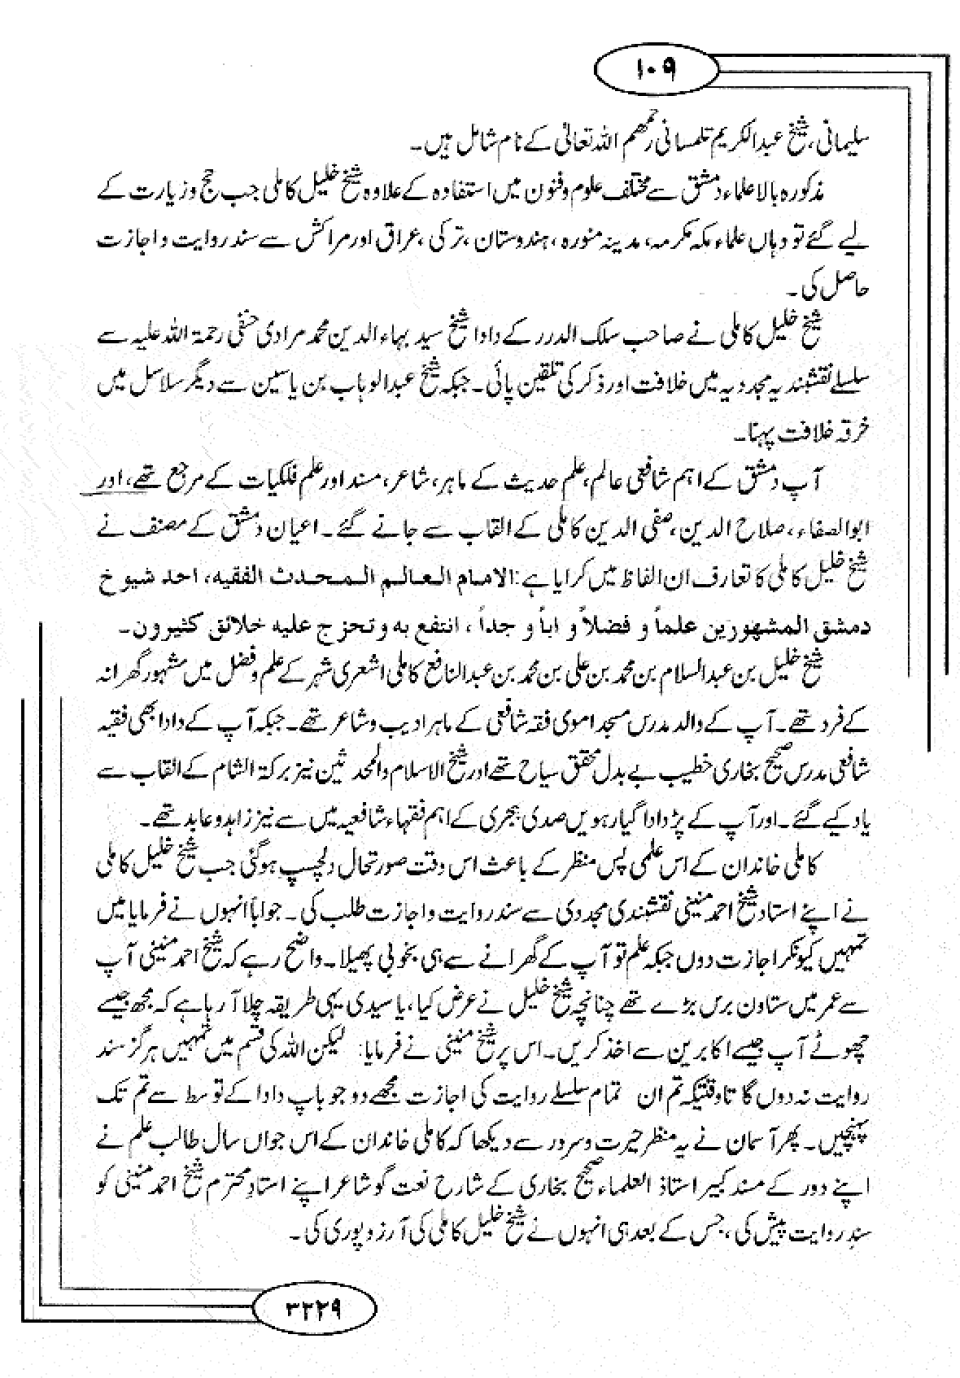 ۱۰۹
سلیمانی، شیخ عبدالکریم تلمسانی رحمھم اللہ تعالیٰ کے نام شامل ہیں۔
مذکورہ بالا علماء دمشق سے مختلف علوم وفنون میں استفادہ کے علاوہ شیخ خلیل کاملی جب حج و زیارت کے
لیے گئے تو وہاں علماء مکہ مکرمہ، مدینہ منورہ، ہندوستان، ترکی، عراق اور مراکش سے سند روایت و اجازت
حاصل کی۔
شیخ خلیل کاملی نے صاحب سلک الدرر کے دادا شیخ سید بہاء الدین محمد مرادی حنفی رحمۃ اللہ علیہ سے
سلسلے نقشبندیہ مجددیہ میں خلافت اور ذکر کی تلقین پائی۔ جبکہ شیخ عبدالوہاب بن یاسین سے دیگر سلاسل میں
خرقہ خلافت پہنا۔
آپ دمشق کے اہم شافعی عالم، علم حدیث کے ماہر، شاعر، مسند اور علم فلکیات کے مرجع تھے، اور
ابوالصفاء، صلاح الدین، صفی الدین کاملی کے القاب سے جانے گئے۔ اعیان دمشق کے مصنف نے
شیخ خلیل کاملی کا تعارف ان الفاظ میں کرایا ہے: الامام العالم المحدث الفقیہ، احد شیوخ
دمشق المشهورین علماً و فضلاً و اباً و جداً، انتفع به و تحزج علیه خلائق کثیرون۔
شیخ خلیل بن عبدالسلام بن محمد بن علی بن محمد بن عبدالنافع کاملی اشعری شہر کے علم و فضل میں مشہور گھرانہ
کے فرد تھے۔ آپ کے والد مدرس مسجد اموی فقہ شافعی کے ماہر ادیب و شاعر تھے۔ جبکہ آپ کے دادا بھی فقیہ
شافعی مدرس صحیح بخاری خطیب بے بدل محقق سیاح تھے اور شیخ الاسلام والمحدثین نیز برکۃ الشام کے القاب سے
یاد کیے گئے۔ اور آپ کے پڑدادا گیارہویں صدی ہجری کے اہم فقہاء شافعیہ میں سے نیز زاہد و عابد تھے۔
کاملی خاندان کے اس علمی پس منظر کے باعث اس وقت صورتحال دلچسپ ہوگئی جب شیخ خلیل کاملی
نے اپنے استاد شیخ احمد منینی نقشبندی مجددی سے سند روایت و اجازت طلب کی۔ جواباً انہوں نے فرمایا میں
تمہیں کیونکر اجازت دوں جبکہ علم تو آپ کے گھرانے سے ہی بخوبی پھیلا۔ واضح رہے کہ شیخ احمد منینی آپ
سے عمر میں ستاون برس بڑے تھے چنانچہ شیخ خلیل نے عرض کیا، یا سیدی یہی طریقہ چلا آ رہا ہے کہ مجھ جیسے
چھوٹے آپ جیسے اکابرین سے اخذ کریں۔ اس پر شیخ منینی نے فرمایا: لیکن اللہ کی قسم میں تمہیں ہرگز سند
روایت نہ دوں گا تاوقتیکہ تم ان تمام سلسلے روایت کی اجازت مجھے دو جو باپ دادا کے توسط سے تم تک
پہنچیں۔ پھر آسمان نے یہ منظر حیرت و سرور سے دیکھا کہ کاملی خاندان کے اس جواں سال طالب علم نے
اپنے دور کے مسند کبیر استاذ العلماء صحیح بخاری کے شارح نعت گو شاعر اپنے استادِ محترم شیخ احمد منینی کو
سندِ روایت پیش کی، جس کے بعد ہی انہوں نے شیخ خلیل کاملی کی آرزو پوری کی۔
۳۲۲۹